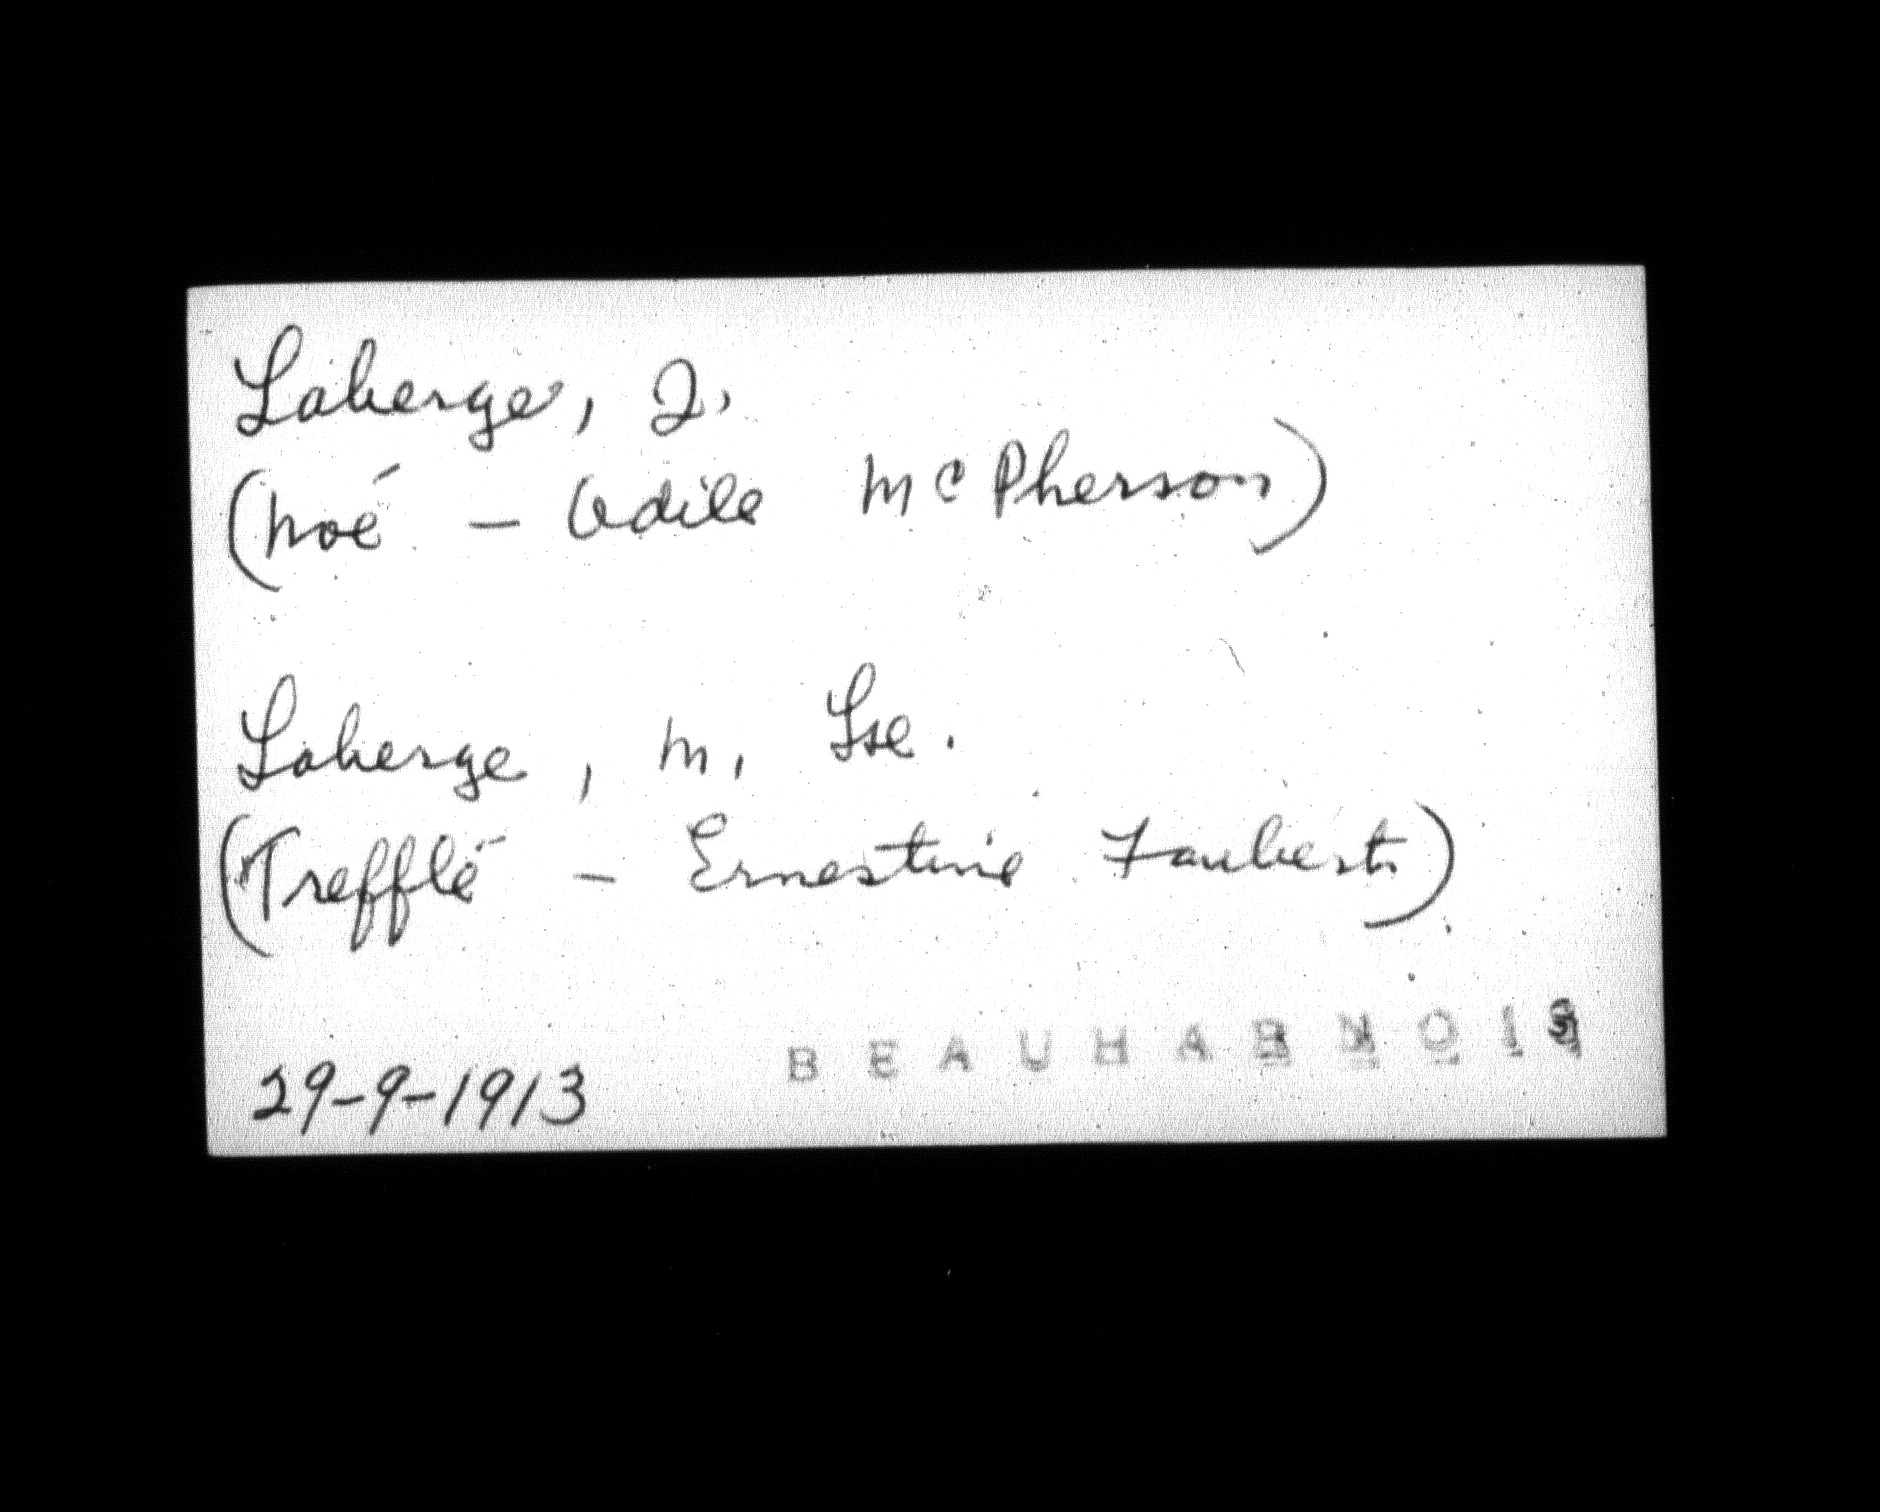 Laberge, J.
(Noé - Odile McPherson)
Laberge, M. Lse.
(Trefflé - Ernestine Faubert)
29-9-1913
BEAUHARNOIS